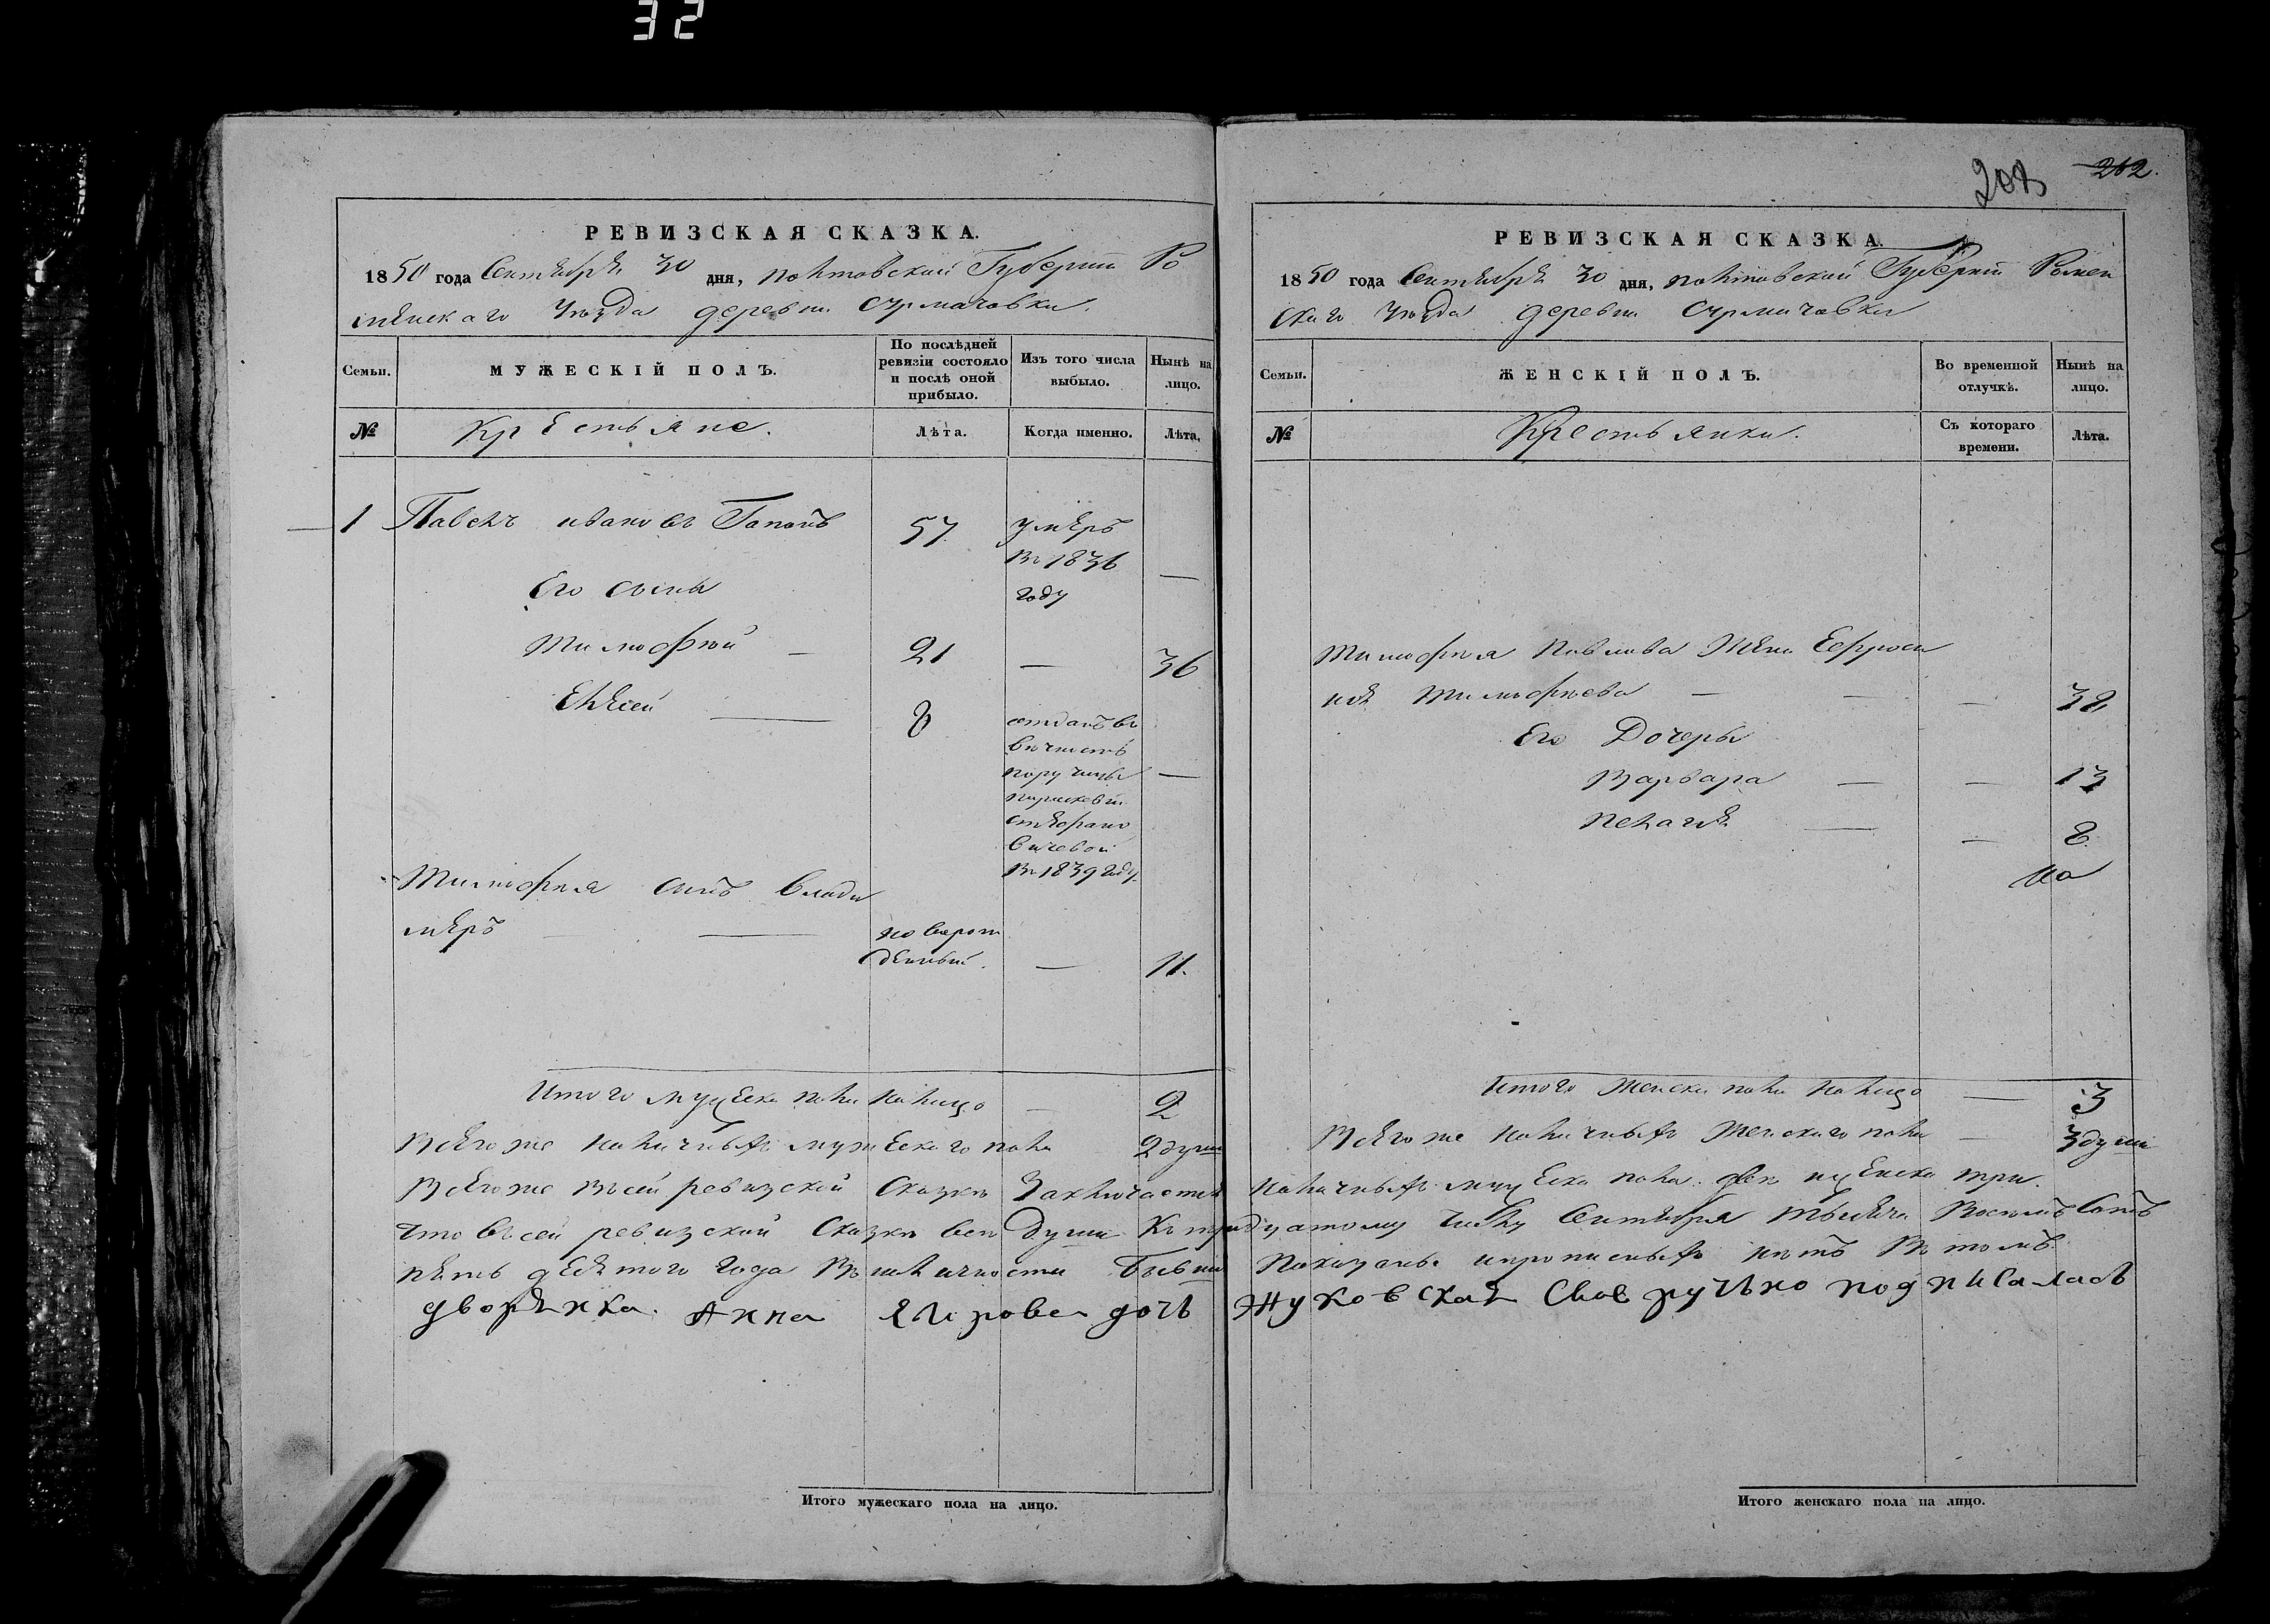 32
208 202.
РЕВИЗСКАЯ СКАЗКА.
1850 года Сентября 30 дня, полтавской Губернии Ро
менскаго Уезда деревни Сурмачовки.
Семьи.
МУЖЕСКІЙ ПОЛЪ.
По послѣдней ревизіи состояло и послѣ оной прибыло.
Изъ того числа выбыло.
Нынѣ на лицо.
№
Крестьяне.
Лѣта.
Когда именно.
Лѣта.
1 Павелъ ивановъ Гапонъ 57 умеръ
в 1836 —
Его сыны году
тимофей — 21 — 36
Елисей — 8 отданъ въ
вечность
поручицы —
параскевии
стефано
вичевой
в 1839 году.
тимофея сынъ влади
меръ — новорож
денный. — 11.
Итого мужеска пола налицо — 2
Всего же наличныхъ мужескаго пола 2 души
РЕВИЗСКАЯ СКАЗКА.
1850 года Сентября 30 дня, полтавской Губернии Ромен
скаго Уезда деревни Сурмачовки
Семьи.
ЖЕНСКІЙ ПОЛЪ.
Во временной отлучкѣ.
Нынѣ на лицо.
№
Крестьянки.
Съ котораго времени.
Лѣта.
тимофея павлова жена Ефроси
ния тимофеева — — — 38
Его Дочеры
Варвара — — 13
пелагия — — 8.
Итого женска пола налицо — 3
Всего же наличныхъ женскаго пола — 3 души
Всего же в сей ревизской Сказке Заключается наличныхъ мужеска пола две и женска три.
что в сей ревизской Сказке все души к тридцатому числу Сентября тысяча Восемъ Сотъ
пять десятого года В наличности Бывши показаны и прописныхъ нетъ в томъ
дворянка Анна дочь Жуковская Своеручъно подписаласъ
Итого мужескаго пола на лицо.
Итого женскаго пола на лицо.